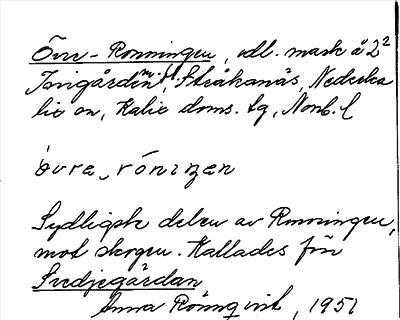 Övre-Rönningen, odl. mark å 2²
Torigården m. fl. Stråkanäs, Nederka
lix sn, Kalix doms. tg, Norrb. l
övre, röningen
Sydligste delen av Rönningen,
mot skogen. Kallades förr
Svedjegårdan
Anna Rönnqvist, 1951